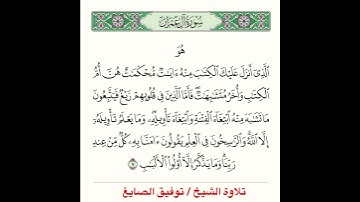 سُورَةُ آلِ عِمْرَانَ
هُوَ
الَّذِي أَنزَلَ عَلَيْكَ الْكِتَابَ مِنْهُ ءَايَاتٌ مُّحْكَمَاتٌ هُنَّ أُمُّ
الْكِتَابِ وَأُخَرُ مُتَشَابِهَاتٌ فَأَمَّا الَّذِينَ فِي قُلُوبِهِمْ زَيْغٌ فَيَتَّبِعُونَ
مَا تَشَابَهَ مِنْهُ ابْتِغَاءَ الْفِتْنَةِ وَابْتِغَاءَ تَأْوِيلِهِ وَمَا يَعْلَمُ تَأْوِيلَهُ
إِلَّا اللَّهُ وَالرَّاسِخُونَ فِي الْعِلْمِ يَقُولُونَ ءَامَنَّا بِهِ كُلٌّ مِّنْ عِندِ
رَبِّنَا وَمَا يَذَّكَّرُ إِلَّا أُولُوا الْأَلْبَابِ ٧
تلاوة الشيخ / توفيق الصايغ